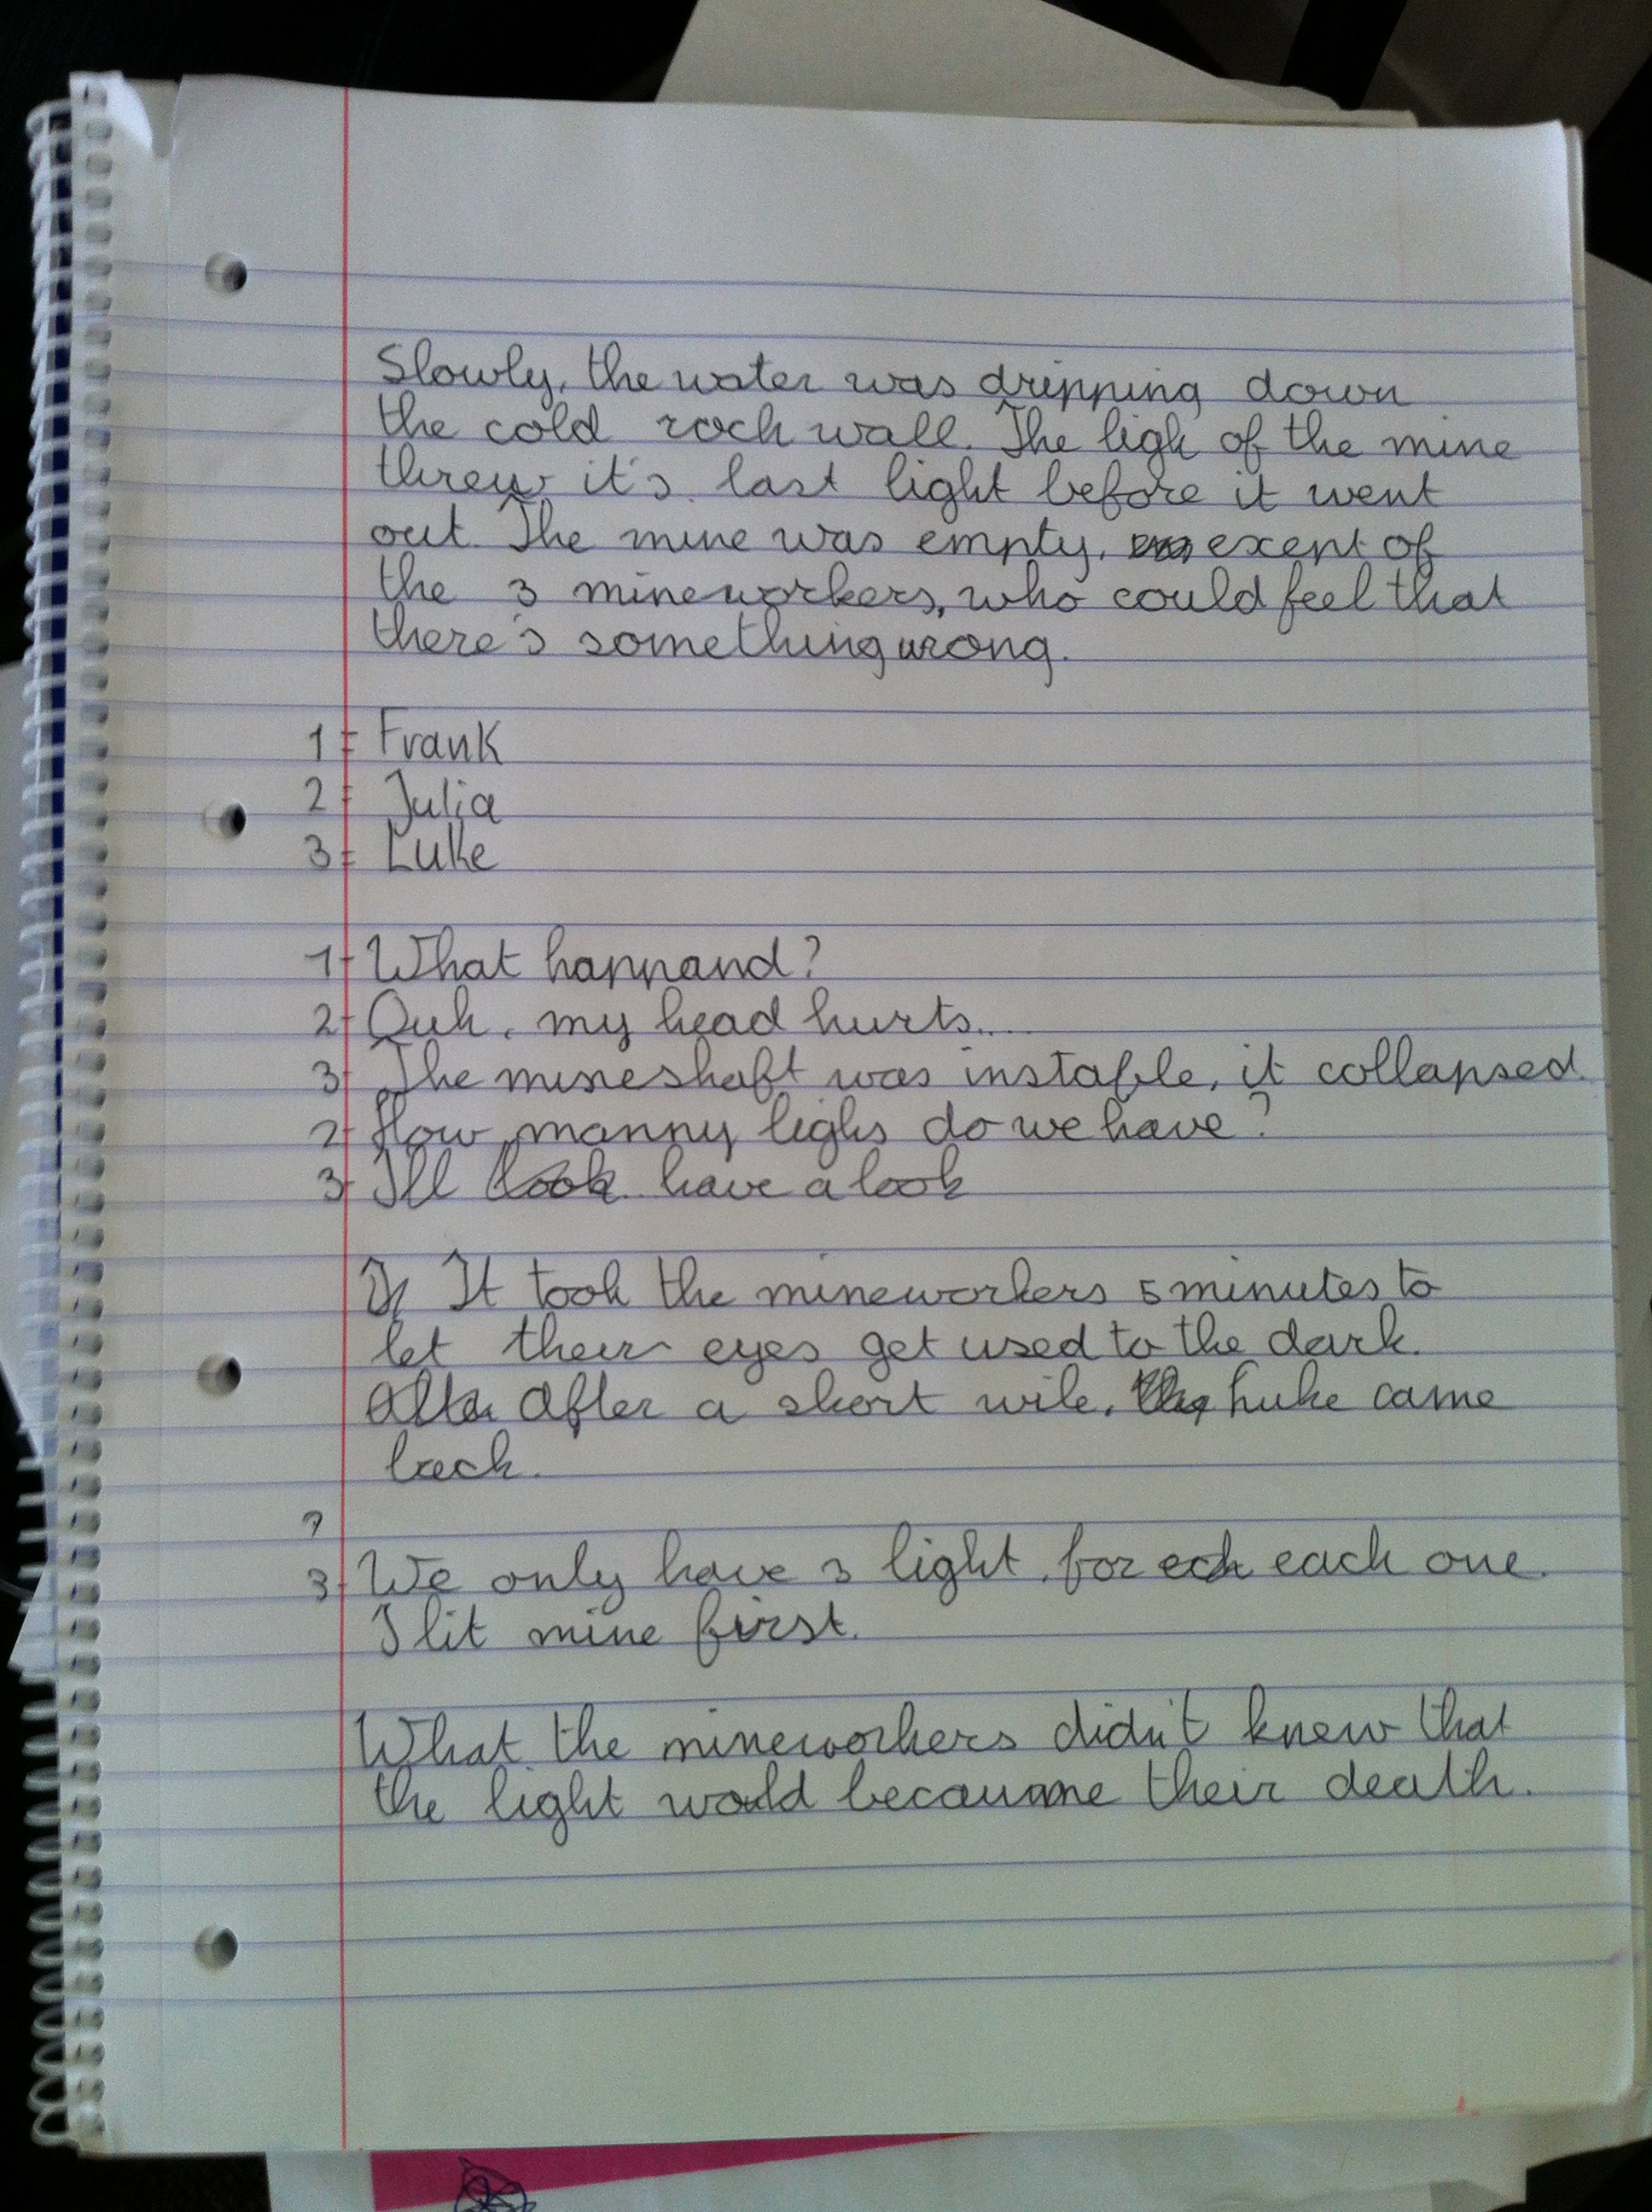 Slowly, the water was dripping down
the cold rock wall. The ligh of the mine
threw it's last light before it went
out. The mine was empty, exept of
the 3 mineworkers, who could feel that
there's something wrong.
1 = Frank
2 = Julia
3 = Luke
1- What happand?
2- Ouh, my head hurts...
3- The mineshaft was instable, it collapsed.
2- How manny lighs do we have?
3- I'll look have a look
It took the mineworkers 5 minutes to
let their eyes get used to the dark.
After a short wile, Luke came
back.
?
3- We only have 3 light, for ech each one.
I lit mine first.
What the mineworkers didn't knew that
the light would becaume their death.